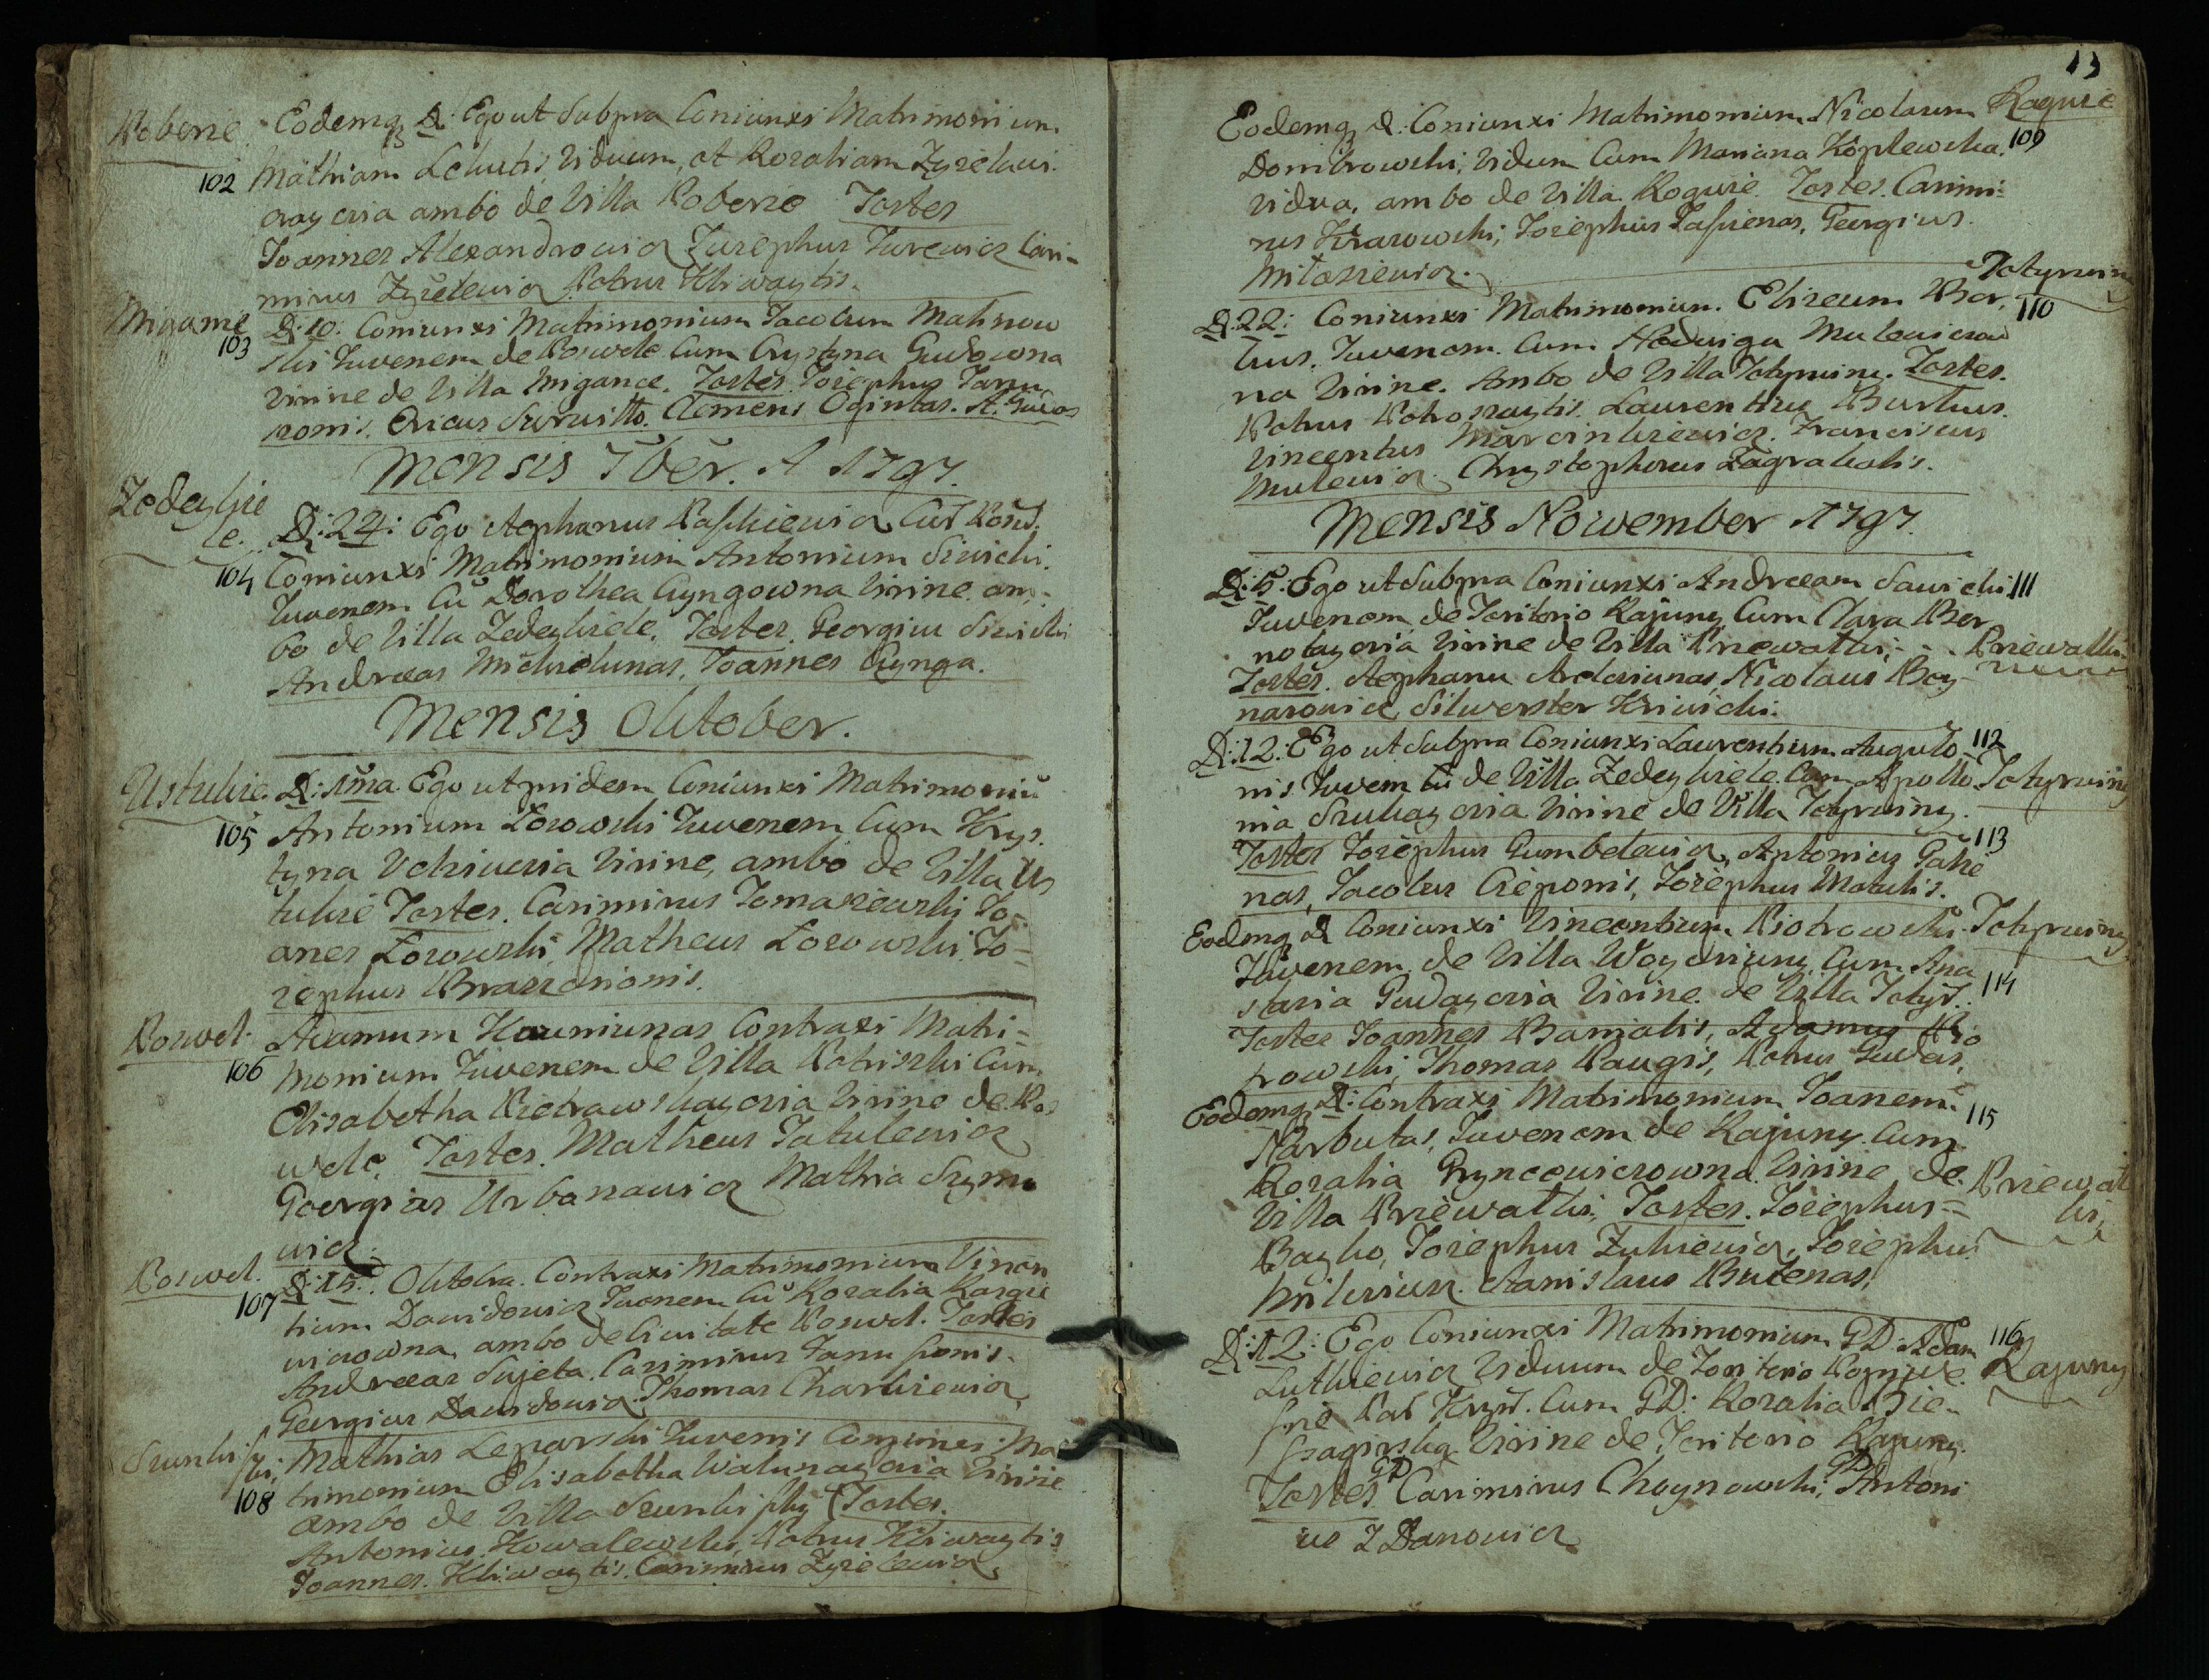 Poberie
102
Eodemq D: Ego ut Subpra Coniunxi Matrimonium
Mathiam Lekutis, Viduum, et Rozaliam Zyzelewi-
ambo de Villa Poberie Testes
Joannes Alexandrowicz Jozephus Jurewicz Cazi-
mirus Zyzelewicz Petrus Kliwaytis.
Migance
103
D: 10. Coniunxi Matrimonium Jacobum Malinow
ski Juvenem de Poswole Cum Crystyna Gudowna
Virine de Villa Migance. Testes. Josephus Janu
szonis. Clemens Ogintas. A. Gudas
Mensis 7ber. A 1797.
Zedeykie
le.
104
D: 24: Ego Stephanus Paszkiewicz Cur Posw.
Coniunxi Matrimonium Antonium Siwicki.
Juvenem Cu Dorothea Cyngowna Virine am-
bo de Villa Zedeykiele. Testes. Georgius Siwicki
Andreeas Mickielunas, Joannes Cynga.
Mensis Oktober.
Ustukie.
105
D: 1ma. Ego ut pridem Coniunxi Matrimoniu
Antonium Lozowski Juvenem Cum Krys-
tyna Virine, ambo de Villa Us
tukie Testes. Casimirus Tomaszewski Jo-
anes Lozowski, Matheus Lozowski Jo=
zephus
Poswol.
106
Adamum Kauniunas Contraxi Matri=
monium Juvenem de Villa Petriszki Cum
Elisabetha Pietrawskaycia Virine de Pos
wole, Testes. Matheus Tatulewicz
Goergias Urbanawicz Mathia Szym
wicz.
Poswol.
107
D: 15. Oktobra. Contraxi Matrimonium Vincen
tium Dawidowicz Juvenem Cu Rozalia Kazgie
wiczowna ambo de Civitate Poswol. Testes
Andreeas Sujeta. Casimirus Janu szonis.
Georgius Dawidowicz Thomas Charkiewicz
Szunkisz
ki.
108
Mathias Leparski Juvenis Coniunxi Ma
trimonium Elisabetha Walunaycia Virine
ambo de Villa Szunkiszky Testes.
Antonius Kowalewski, Petrus Kliwaytis
Joannes. Kliwaytis. Casimirus Zyzelewicz
13
Eodemq D: Coniunxi Matrimonium Nicolaum
Dombrowski, Vidum Cum Mariana Koplewska
Vidua, ambo de Villa Roguzie Testes. Casimi-
rus Kirarowski, Jozephus Georgius
Mitaszewicz.
Raguzie
109
D: 22: Coniunxi Matrimonium. Elizeum Ber-
kus. Juvenem. Cum Hedwiga Mulewiczow
na Virine. Ambo de Villa Totyrwiny. Testes.
Petrus Petroszaytis. Laurentius Burkus.
Vincentus Marcinkiewicz. Franciscus
Mulewicz Chrystophorus Zagrakalis.
Totyrwiny
110
Mensis Nowember 1797.
D: 5. Ego ut Subpra Coniunxi Andreeam Sawicki
Juvenem de Teritorio Rajuny Cum Clara Ber
notaycia Virine de Villa Priewalki,
Testes. Stephanu Nicolaus Bey
narowicz Silwerster Kriwicki.
111
Priewalki
D: 12: Ego ut Subpra Coniunxi Laurentium Augulo-
nis Juvem Cu de Villa Zedeykiele. Cum Apollo-
nia Szukaycia Virine de Villa Totyrwiny.
Testes Jozephus Gumbelewicz, Antonius Galie
nas, Jacobus Cieponis, Jozephus Matulis.
112
Totyrwiny
113
Eodemq D Coniunxi Vincentium Piotrawski
Juvenem de Villa Waydziuny Cum Ana
stazia Gudaycia Virine. de Villa Totyr.
Testes Joannes Baniatis, Adamus Pio
trowski, Thomas Paugis, Petrus Gudas,
Totyrwiny
114
Eodemq D: Contraxi Matrimonium Joanem
Narbutas, Juvenem de Rajuny. Cum
Rozalia Gryncewiczowna Virine de
Villa Priewalki, Testes. Jozephus=
Bayko, Jozephus Zukiewicz, Jozephus
Stanislaus Butenas.
115
Priewal
ki,
D: 12: Ego Coniunxi Matrimonium GD. Adam
Lutkiewicz Viduum de Teritorio
Cum GD: Rozalia Bie-
Virine de Teritorio Rajuny.
Testes GD Casimirus Choynowski, GD Antoni
us Zdanowicz
116
Rajuny